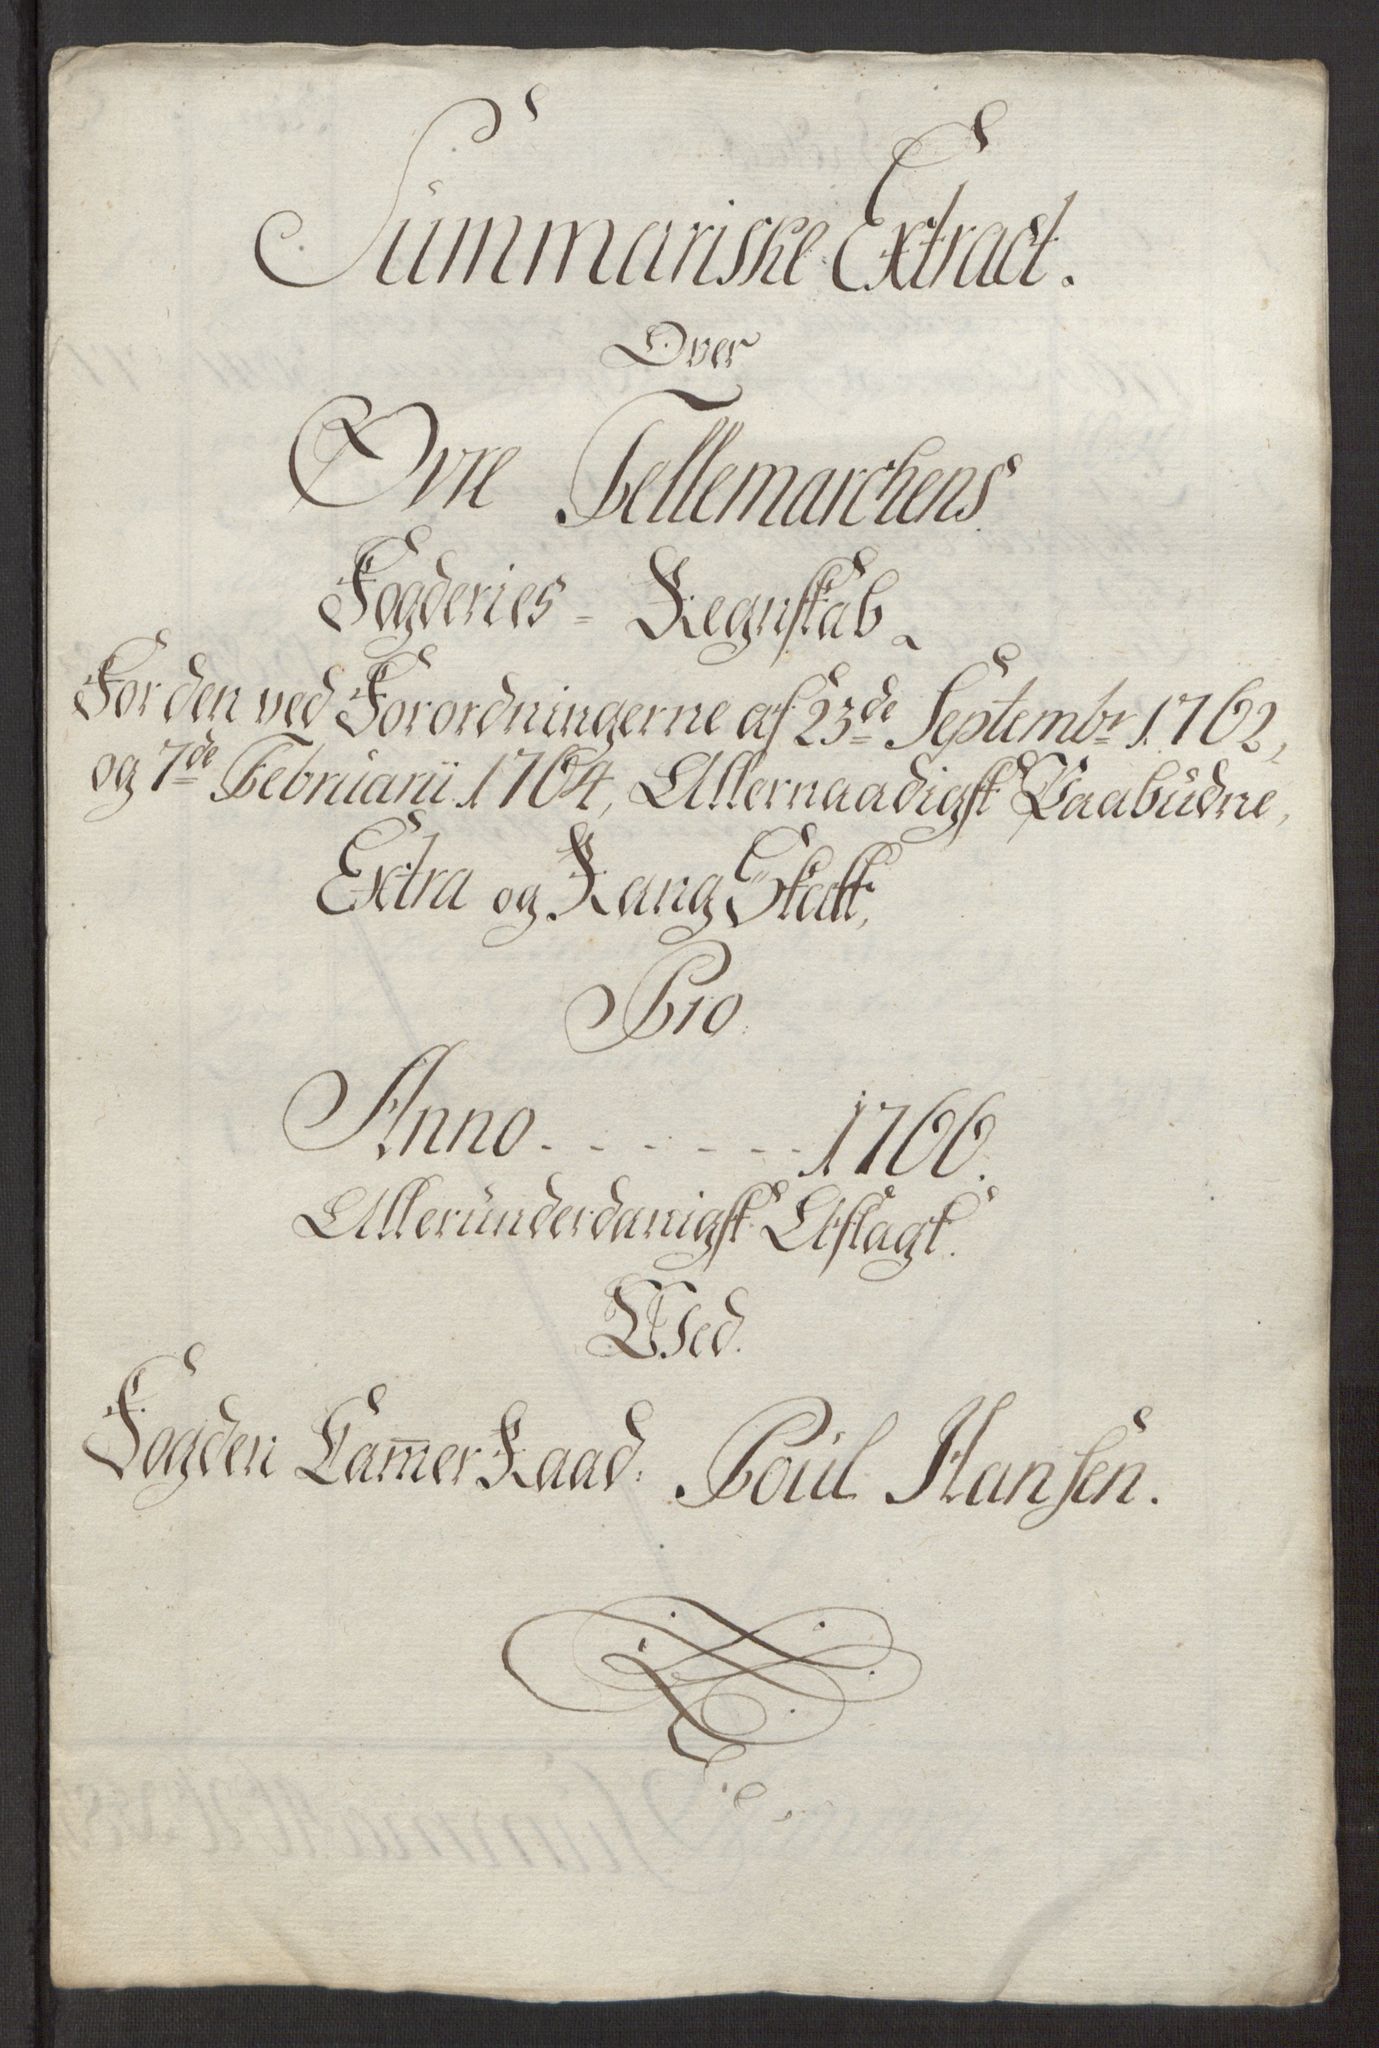 Summariske Extract.
Over
Øvre Tellemarchens
Fogderies - Regnskab
For den ved Forordningerne af 23de Septembr 1762,
og 7de Februarii 1764, Allernaadigst Paabudne,
Extra og Rang Skatt,
Pro
Anno - - - - - - 1766.
Allerunderdanigst Aflagt.
Wed.
Fogden Cam̅er Raad: Poul Hansen.